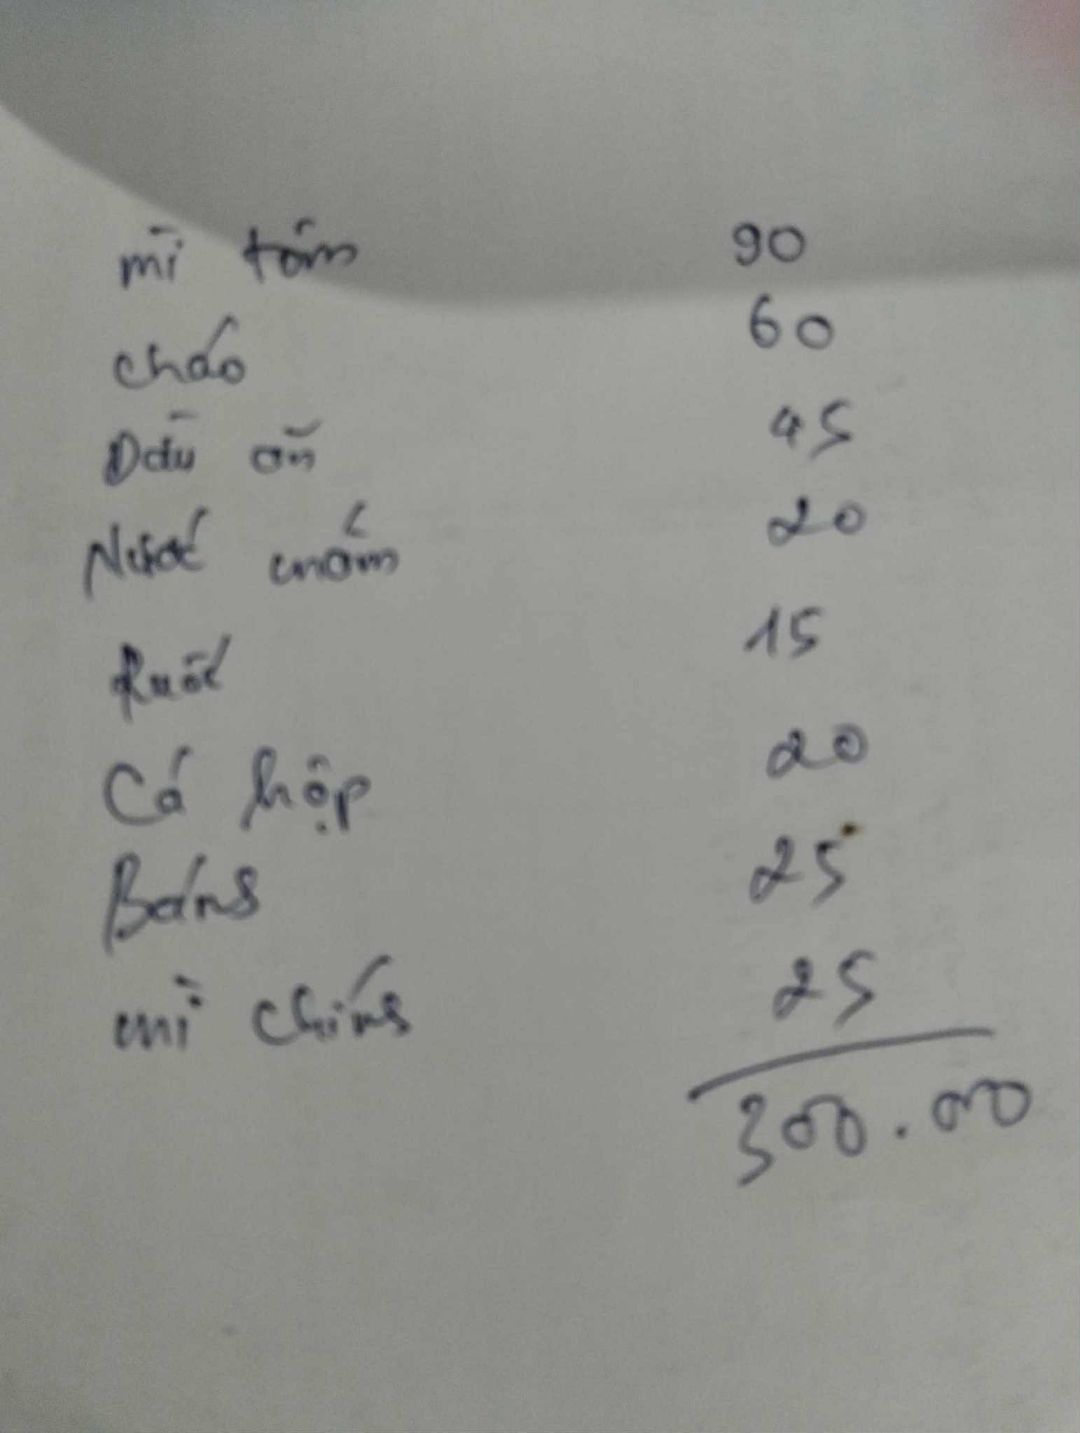 mì tôm 90
cháo 60
Dầu ăn 45
Nước mắm 20
Ruốc 15
Cá hộp 20
Bánh 25
mì chính 25
300.000